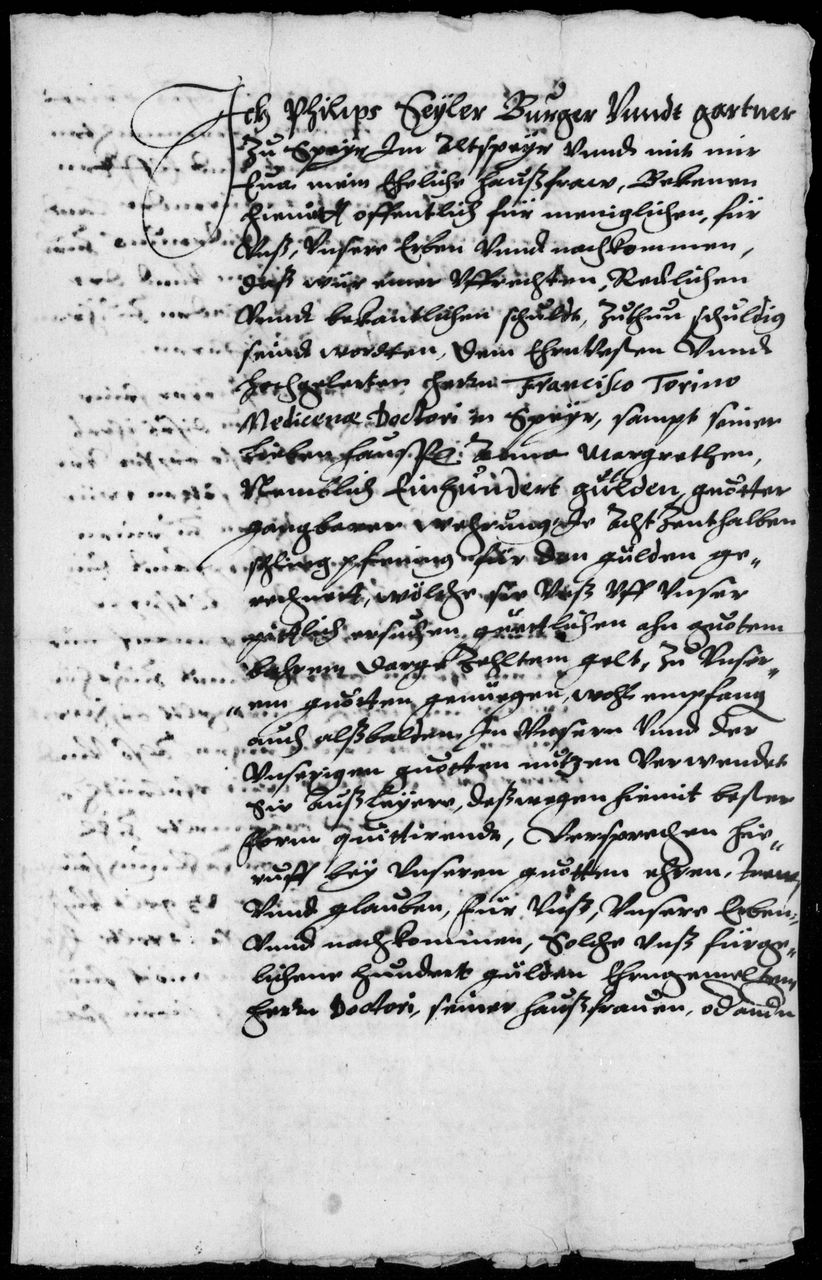 Ich Philips Seÿler Burger Vnndt gartner
Zu Speÿr Im Altspeÿr Vnnd mit mir
Eua mein Eheliche haußfraw, Bekenen
hiemitt offentlich für meniglichen, für
Vnß, Vnsere Erben Vnnd nachkommen,
daß wür einer Vffrechten, Redlichen
Vnnd bekantlichen schuldt, Zuthun schuldig
seind wordten, dem Ehrnvesten Vnnd
hochgelerten herrn Francisco Torino
Medicenæ Doctori in Speÿr, sampt seiner
lieben haußfr: Anna Margrethen,
Nemblich Einhundert gulden, guotter
gangbarer wehrung, Je Acht Zenthalben
pfening für den gulden ge-
rechnett, wölche sie Vnß Vff Vnser
pittlich ersuchen, guettlichen ahn guotem
bahrem dargeZelltem gelt, Zu Vnser-
em guotten genüegen, wohl empfang
auch alßbalden In Vnsern Vnnd der
Vnserigen guotten nutzen Verwendet
Sie deßwegen hiemit bester
form quittirendt, Versprechen hie-
ruff beÿ Vnseren guotten ehren, Trewen
Vnnd glauben, für Vnß, Vnsere Erben
Vnnd nachkommen, Solche vnß fürge-
lichene hundert gulden Ehrngemeltem
herrn Doctori, seiner haußfrauen, od andn